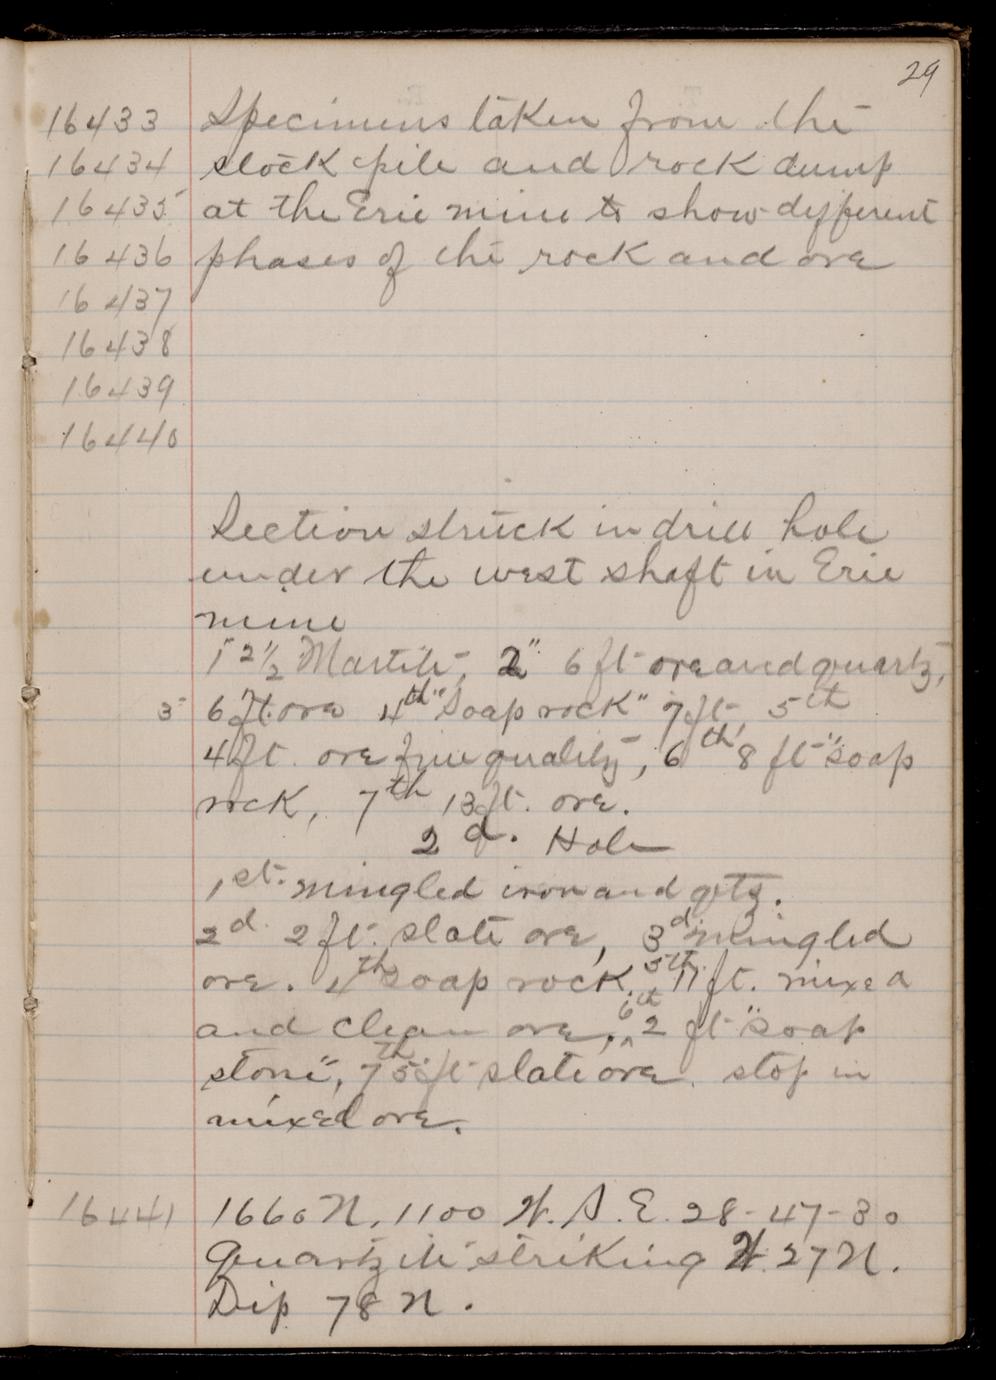 29
16433 Specimens taken from the
16434 stock pile and rock dump
16435 at the Erie mine to show different
16436 phases of the rock and ore
16437
16438
16439
16440
Section struck in drill hole
under the west shaft in Erie
mine
1" 2½ Martite, 2" 6 ft ore and quartz,
3" 6 ft. ore 4th "Soap rock" 7 ft, 5th
4 ft. ore fine quality, 6th 8 ft "soap
rock, 7th 13 ft. ore.
2d. Hole
1st. mingled iron and qtz.
2d. 2 ft. slate ore, 3d mingled
ore. 4th soap rock. 5th. 11 ft. mixed
and clean ore, 6th 2 ft "soap
stone", 7th 5 ft slate ore. stop in
mixed ore.
16441 1660 N, 1100 W. S. E. 28-47-30
Quartzite striking W. 27 N.
Dip 78 N.